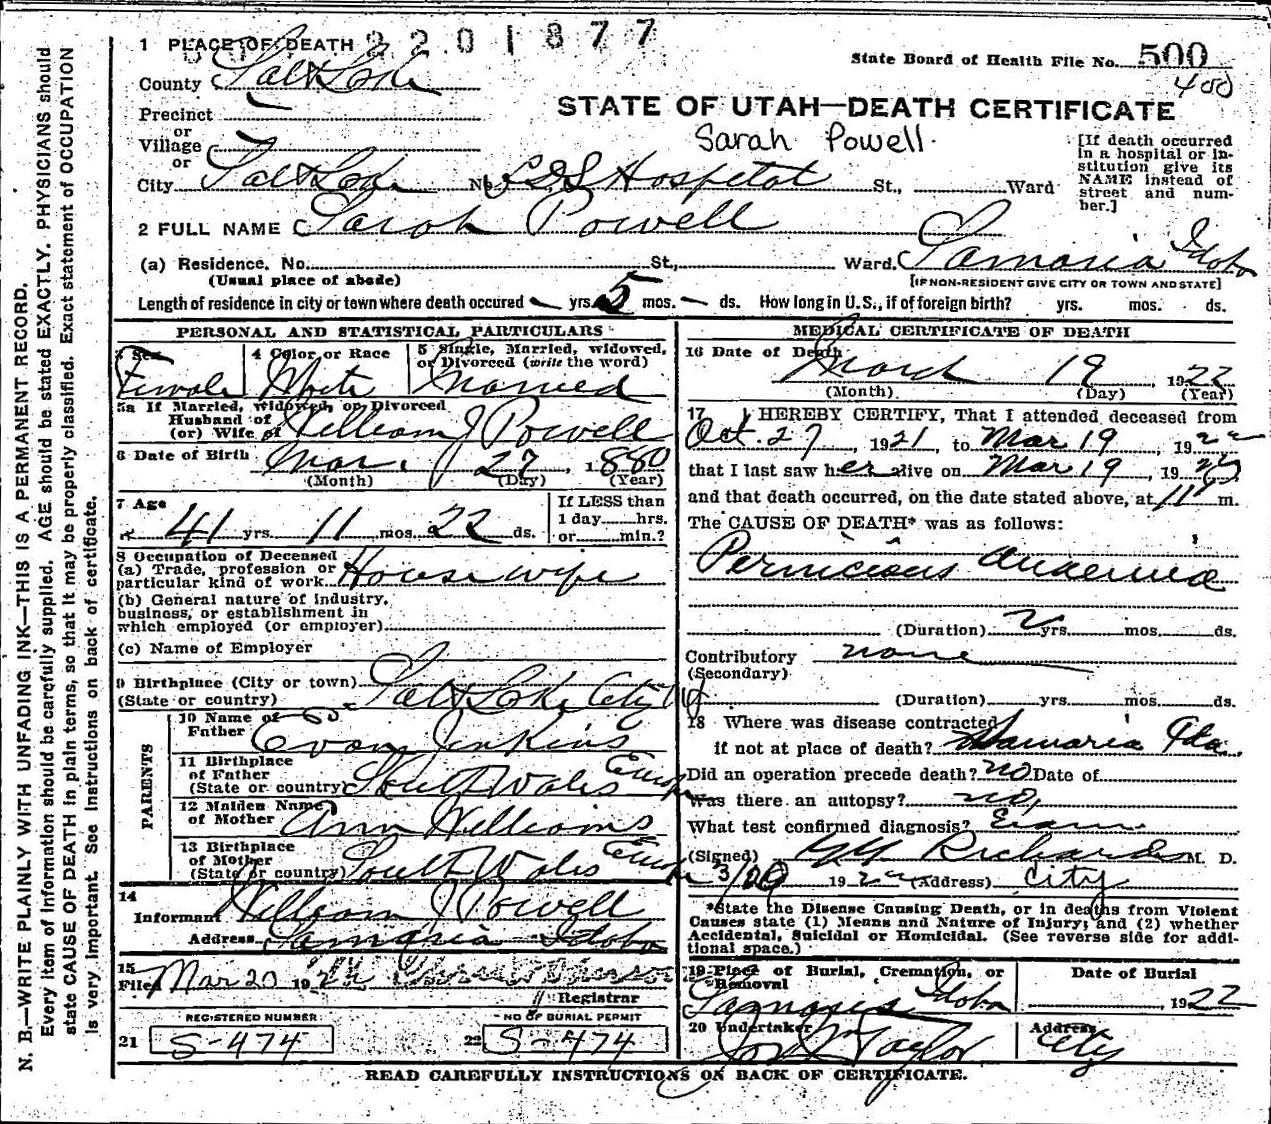 1 PLACE OF DEATH 2201877
State Board of Health File No. 500
400
County Salt Lake
STATE OF UTAH—DEATH CERTIFICATE
Precinct
or
Village
or
Sarah Powell.
[If death occurred in a hospital or institution give its NAME instead of street and number.]
City Salt Lake No. LDS Hospital St., Ward
2 FULL NAME Sarah Powell
(a) Residence. No. St., Ward. Samaria Idaho
(Usual place of abode) [IF NON-RESIDENT GIVE CITY OR TOWN AND STATE]
Length of residence in city or town where death occured — yrs. 5 mos. — ds. How long in U.S., if of foreign birth? yrs. mos. ds.
PERSONAL AND STATISTICAL PARTICULARS
3 Sex 4 Color or Race 5 Single, Married, widowed, or Divorced (write the word)
Female White Married
5a If Married, widowed, or Divorced
Husband of
(or) Wife of William J Powell
6 Date of Birth Mar. 27, 1880
(Month) (Day) (Year)
7 Age If LESS than
41 yrs. 11 mos. 22 ds. 1 day hrs.
or min.?
8 Occupation of Deceased
(a) Trade, profession or
particular kind of work Housewife
(b) General nature of industry,
business, or establishment in
which employed (or employer)
(c) Name of Employer
9 Birthplace (City or town) Salt Lake City
(State or country)
PARENTS
10 Name of
Father Evan Jenkins
11 Birthplace
of Father
(State or country) South Wales
12 Maiden Name
of Mother Ann Williams
13 Birthplace
of Mother
(State or country) South Wales
14
Informant William J Powell
Address Samaria Idaho
15
Filed Mar 20 192
Registrar
REGISTERED NUMBER NO OF BURIAL PERMIT
21 S-474 22 S-474
MEDICAL CERTIFICATE OF DEATH
16 Date of Death
March 19, 1922
(Month) (Day) (Year)
17 I HEREBY CERTIFY, That I attended deceased from
Oct. 27, 1921, to Mar 19, 1922
that I last saw her alive on Mar 19, 1922
and that death occurred, on the date stated above, at 11 m.
The CAUSE OF DEATH* was as follows:
Pernicious Anaemia
(Duration) 2 yrs. mos. ds.
Contributory none
(Secondary)
(Duration) yrs. mos. ds.
18 Where was disease contracted
if not at place of death? Samaria Ida.
Did an operation precede death? no Date of
Was there an autopsy? no
What test confirmed diagnosis? Exam.
(Signed) G G Richards M. D.
3/20 1922 (Address) City
*State the Disease Causing Death, or in deaths from Violent
Causes state (1) Means and Nature of Injury; and (2) whether
Accidental, Suicidal or Homicidal. (See reverse side for additional space.)
19 Place of Burial, Cremation, or Removal Date of Burial
Samaria Idaho 1922
20 Undertaker Address
Jos Wm Taylor City
READ CAREFULLY INSTRUCTIONS ON BACK OF CERTIFICATE.
N. B.—WRITE PLAINLY WITH UNFADING INK—THIS IS A PERMANENT RECORD.
Every item of information should be carefully supplied. AGE should be stated EXACTLY. PHYSICIANS should
state CAUSE OF DEATH in plain terms, so that it may be properly classified. Exact statement of OCCUPATION
is very important. See instructions on back of certificate.